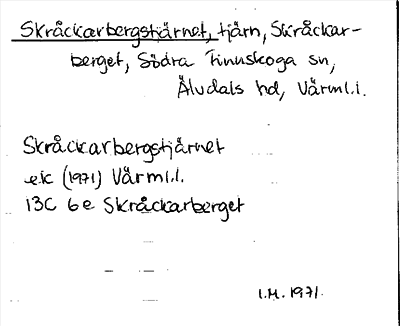 Skråckarbergstjärnet, tjärn, Skråckar-
berget, Södra Finnskoga sn,
Älvdals hd, Värml.l.
Skråckarbergstjärnet
ek (1971) Värml.l.
13C 6e Skråckarberget
I.M. 1971.